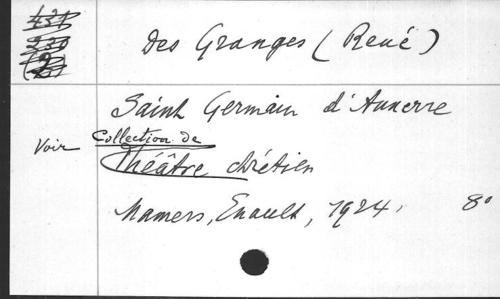 Des Granges (René)
Saint Germain d'Auxerre
Voir Collection de
Théâtre chrétien
Mamers, Enault, 1924, 8°